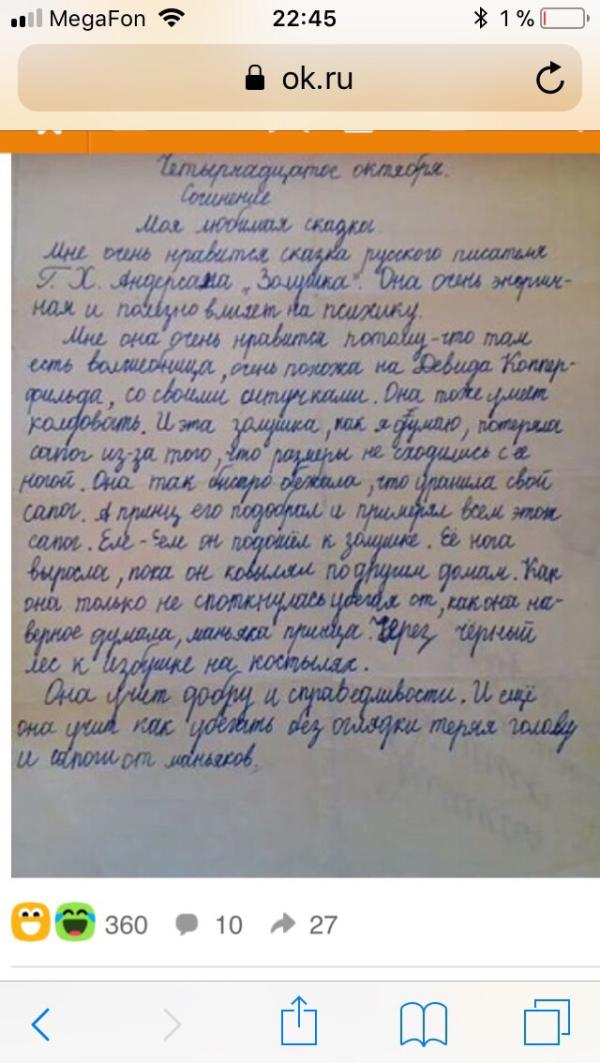 MegaFon 22:45 1 %
ok.ru
Четырнадцатое октября.
Сочинение
Моя любимая сказка.
Мне очень нравится сказка русского писателя
Г. Х. Андерсана „Золушка". Она очень энергич-
ная и полезно влияет на психику.
Мне она очень нравится потому-что там
есть волшебница, очень похожа на Девида Коппер-
фильда, со своими штучками. Она тоже умеет
колдовать. И эта золушка, как я думаю, потеряла
сапог из-за того, что размеры не сходились с её
ногой. Она так быстро бежала, что уранила свой
сапог. А принц его подобрал и примерял всем этот
сапог. Еле-Еле он подошёл к золушке. Её нога
выросла, пока он ковылял по другим домам. Как
она только не споткнулась убегая от, как она на-
верное думала, маньяка принца. Через чёрный
лес к избушке на костылях.
Она учит добру и справедливости. И ещё
она учит как убегать без оглядки теряя голову
и сапоги от маньяков.
360 10 27